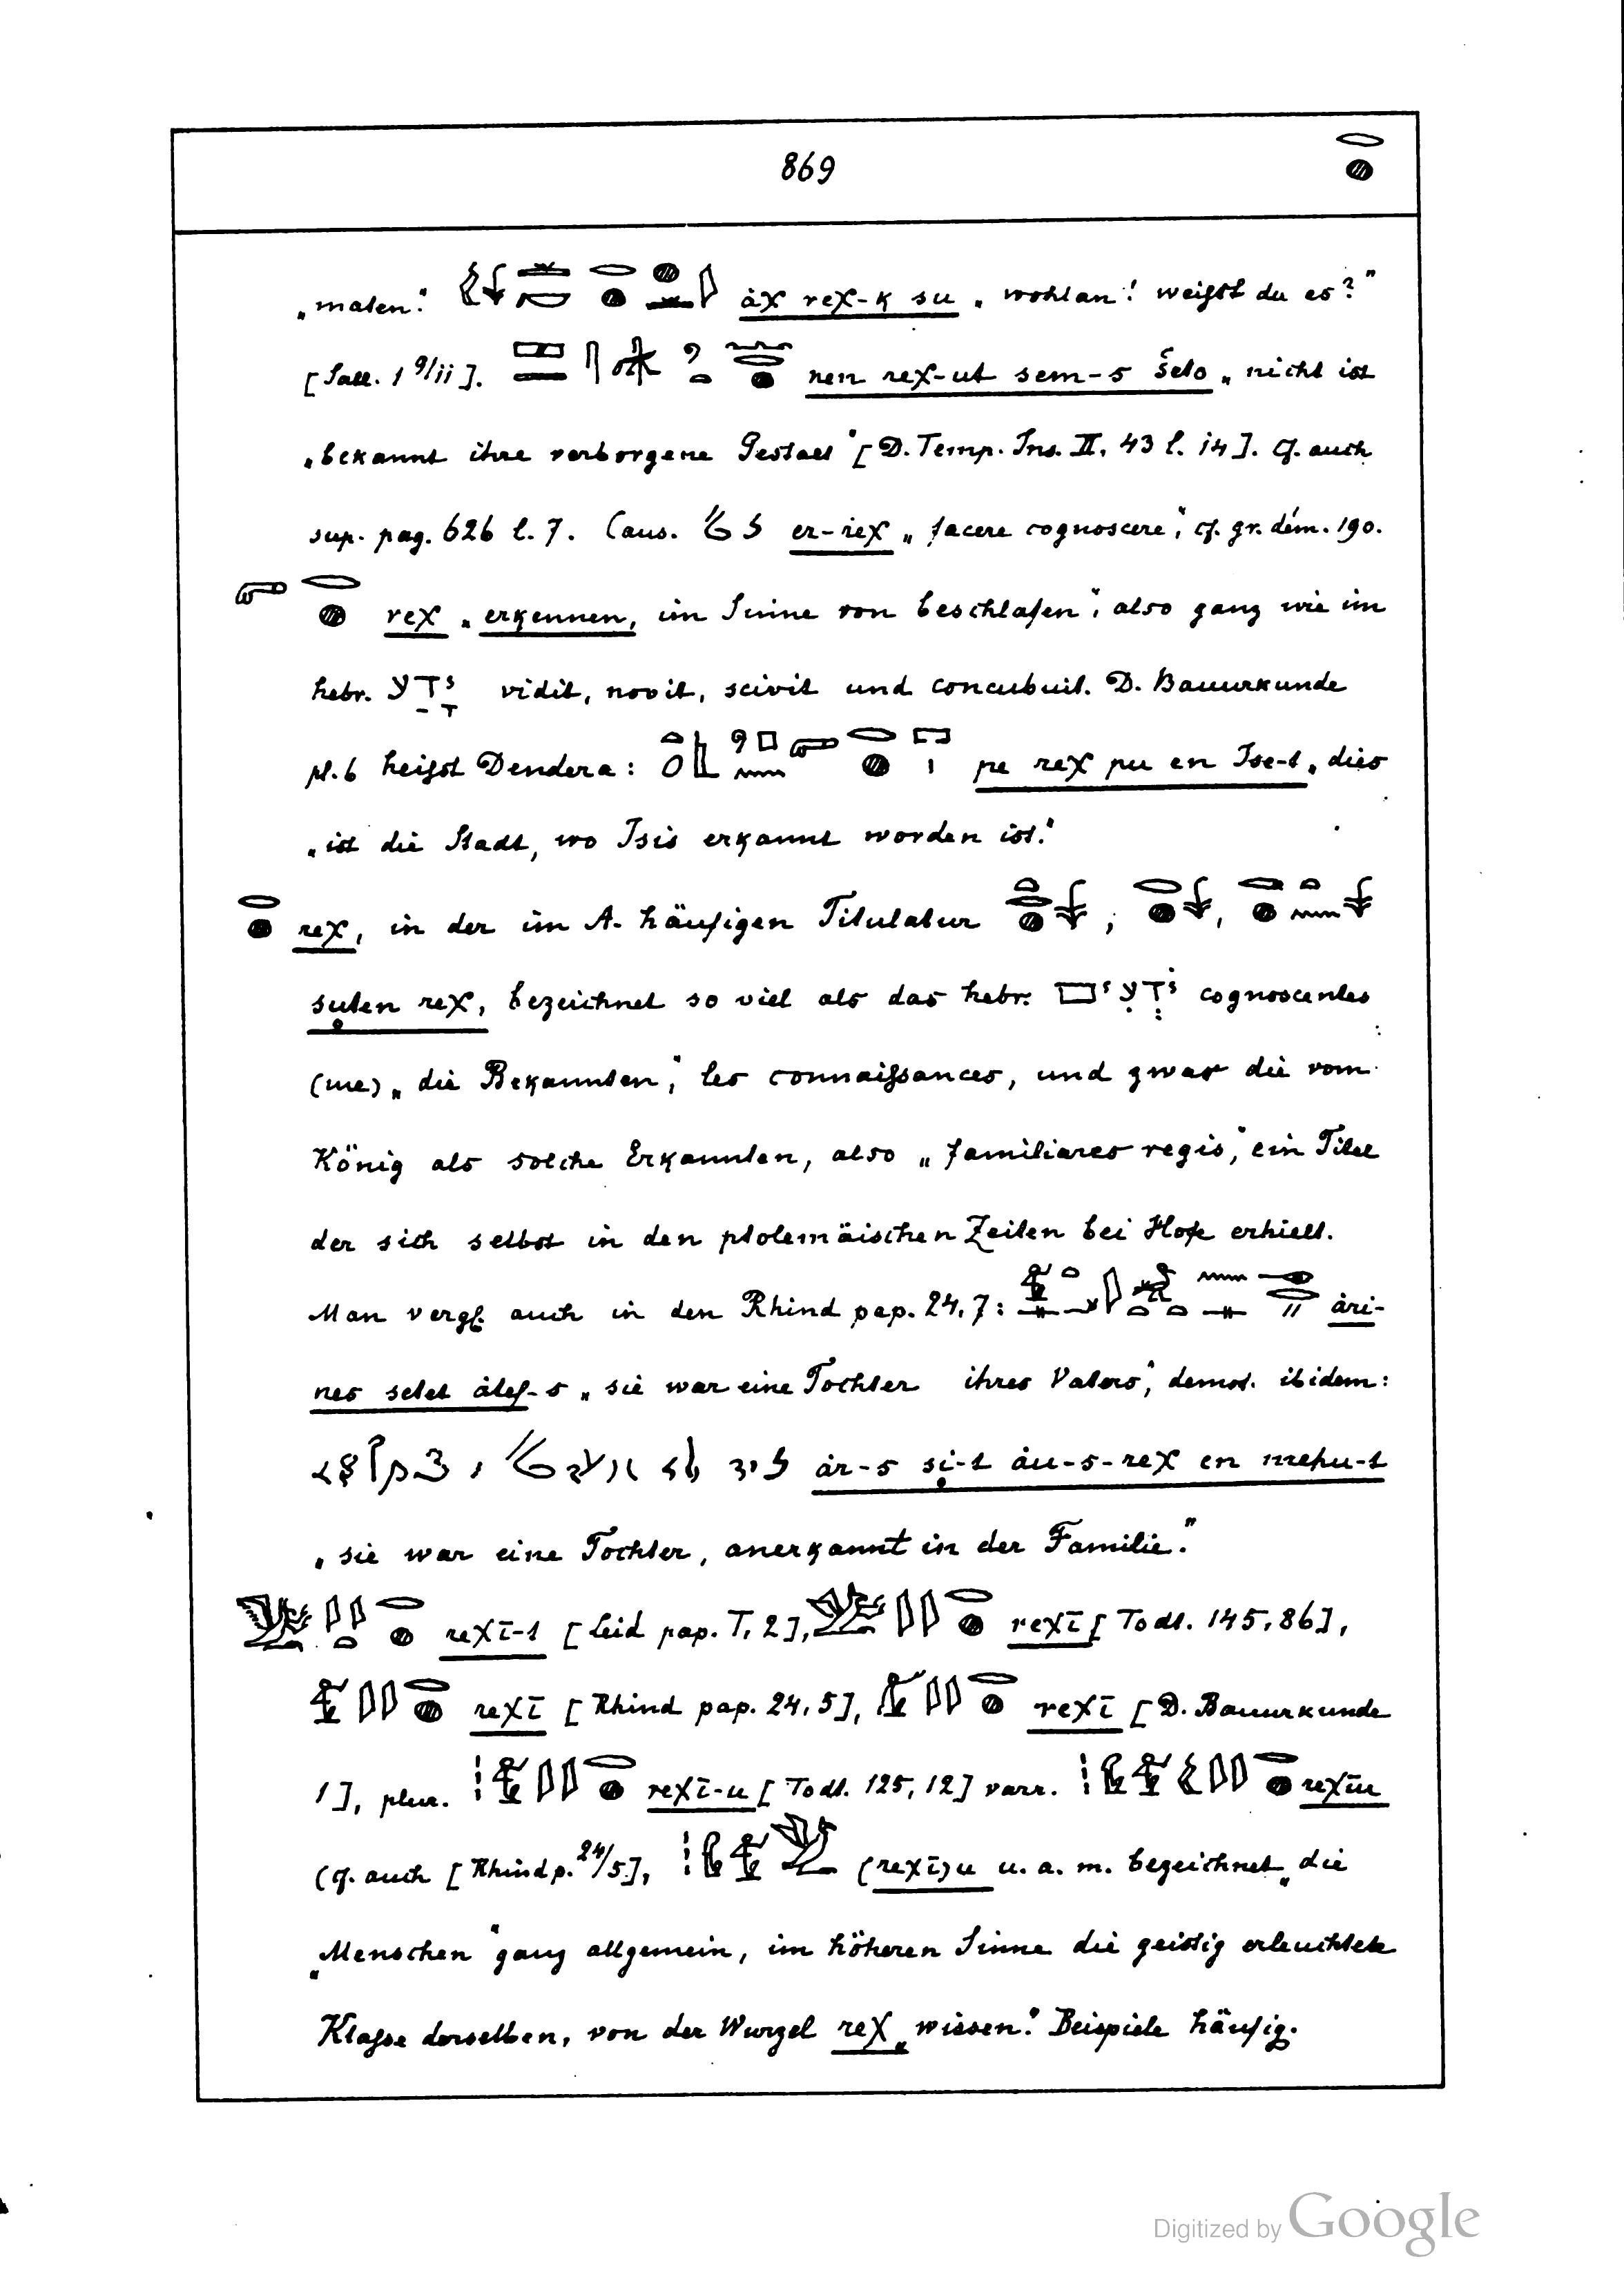 869
„maten." ȧχ reχ-k su „wohlan! weißt du es?"
[Sall. 1 9/11]. nen reχ-ut sem-s šeto „nicht ist
„bekannt ihre verborgene Gestalt" [D. Temp. Ins. II, 43 l. 14]. Cf. auch
sup. pag. 626 l. 7. Caus. er-reχ „facere cognoscere", cf. gr. dém. 190.
reχ „erkennen, im Sinne von beschlafen", also ganz wie im
hebr. יָדַע vidit, novit, scivit und concubuit. D. Bauurkunde
pl. 6 heißt Dendera: pe reχ pu en Ise-t „dies
„ist die Stadt, wo Isis erkannt worden ist."
reχ, in der im A. häufigen Titulatur ; ,
suten reχ, bezeichnet so viel als das hebr. יְדֻעִים cognoscentes
(me) „die Bekannten", les connaißances, und zwar die vom
König als solche Erkannten, also „familiares regis", ein Titel
der sich selbst in den ptolemäischen Zeiten bei Hofe erhielt.
Man vergl. auch in den Rhind pap. 24,7: ȧri-
nes setet ȧtef-s „sie war eine Tochter ihres Vaters", demot. ibidem:
ȧr-s si-t ȧu-s-reχ en mehu-t
„sie war eine Tochter, anerkannt in der Familie."
reχī-t [Leid pap. T, 2], reχī [Todt. 145,86],
reχī [Rhind pap. 24,5], reχī [D. Bauurkunde
1], plur. reχī-u [Todt. 125,12] varr. reχīu
(cf. auch [Rhind p. 24/5], (reχī)u u. a. m. bezeichnet „die
„Menschen" ganz allgemein, im höheren Sinne die geistig erleuchtete
Klaße derselben, von der Wurzel reχ „wissen". Beispiele häufig.
Digitized by Google